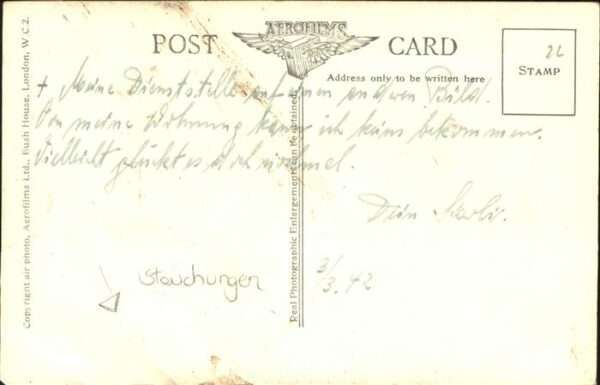 AEROFILMS
POST CARD
Address only to be written here
22
STAMP
+ Meine Dienststelle auf einem anderen Bild.
Von meine Wohnung kann ich keins bekommen.
Vielleicht glückt es noch einmal.
Dein
3/3.42
Stauchungen
Copyright air photo, Aerofilms Ltd., Bush House, London, W C 2.
Real Photographic Enlargements can be obtained.